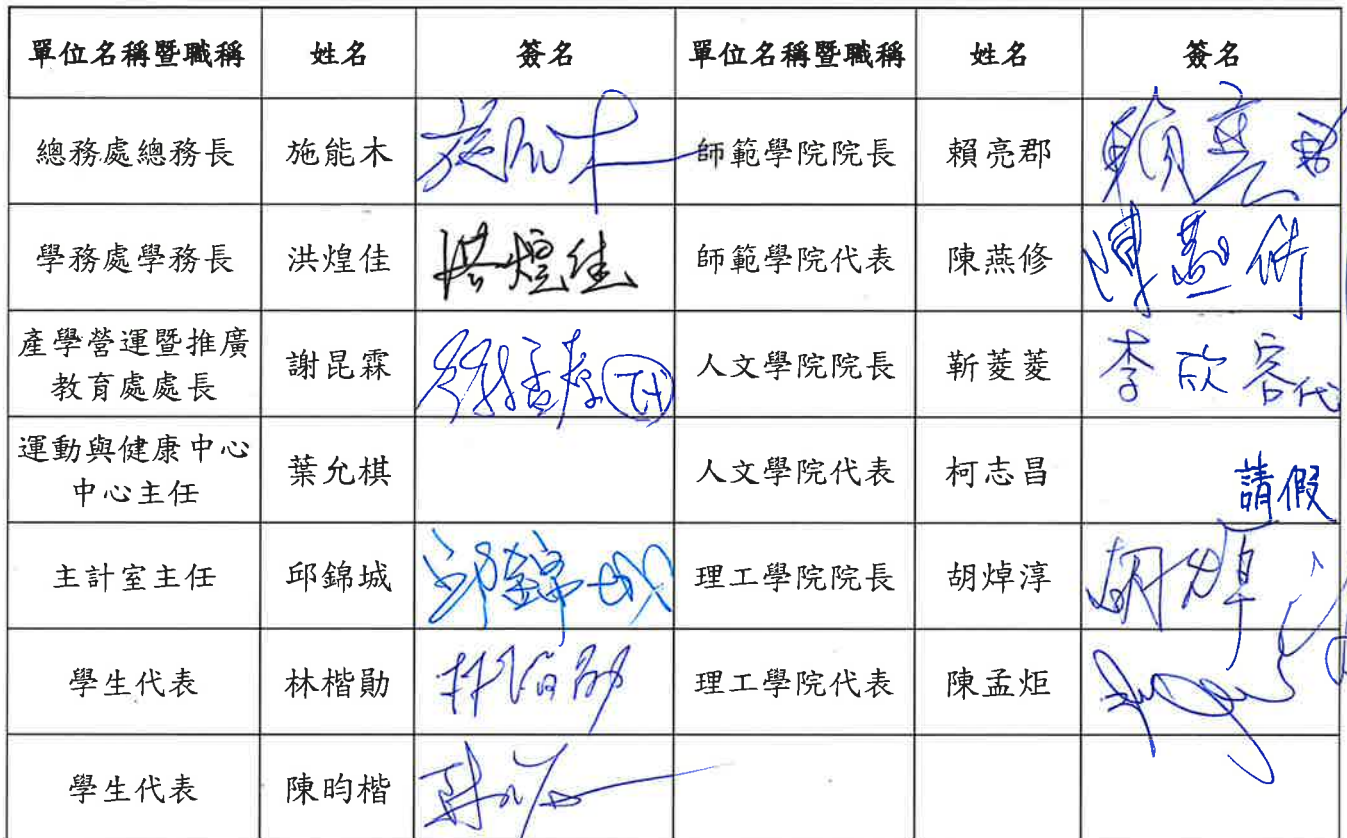 單位名稱暨職稱 姓名 簽名 單位名稱暨職稱 姓名 簽名
總務處總務長 施能木 施能木 師範學院院長 賴亮郡 賴亮郡
學務處學務長 洪煌佳 洪煌佳 師範學院代表 陳燕修 陳燕修
產學營運暨推廣
教育處處長 謝昆霖 代 人文學院院長 靳菱菱 李欣容代
運動與健康中心
中心主任 葉允棋 人文學院代表 柯志昌 請假
主計室主任 邱錦城 邱錦城 理工學院院長 胡焯淳 胡焯淳
學生代表 林楷勛 林楷勛 理工學院代表 陳孟炬
學生代表 陳昀楷